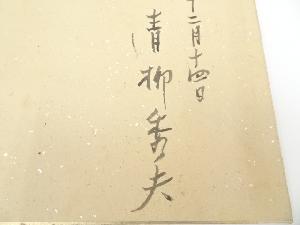 十二月十四日
青柳秀夫